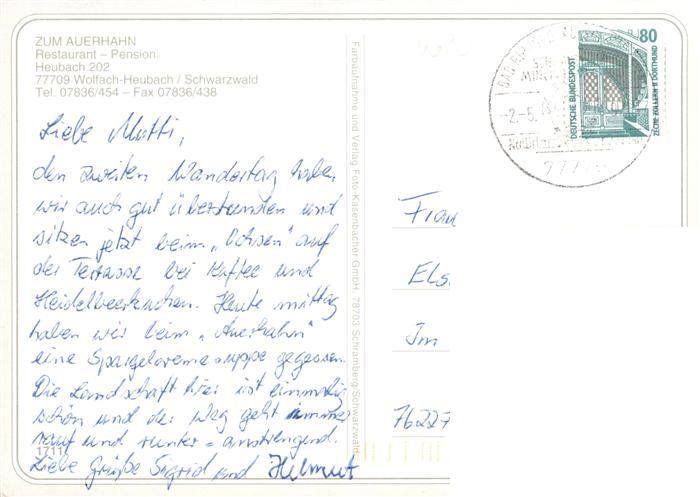 ZUM AUERHAHN
Restaurant – Pension
Heubach 202
77709 Wolfach-Heubach / Schwarzwald
Tel. 07836/454 – Fax 07836/438
Liebe Mutti,
den zweiten Wandertag haben
wir auch gut überstanden und
sitzen jetzt beim „Ochsen" auf
der Terrasse bei Kaffee und
Heidelbeerkuchen. Heute mittag
haben wir beim „Auerhahn"
eine Spargelcremesuppe gegessen.
Die Landschaft hier ist einmalig
schön und der Weg geht immer
rauf und runter = anstrengend.
Liebe Grüße Sigrid und Helmut
1711
Farbaufnahme und Verlag Foto-Kasenbacher GmbH 78703 Schramberg/Schwarzwald
80
DEUTSCHE BUNDESPOST
ZECHE ZOLLERN II DORTMUND
BAD
-2.-5.
777
Frau
Els
Im
76227